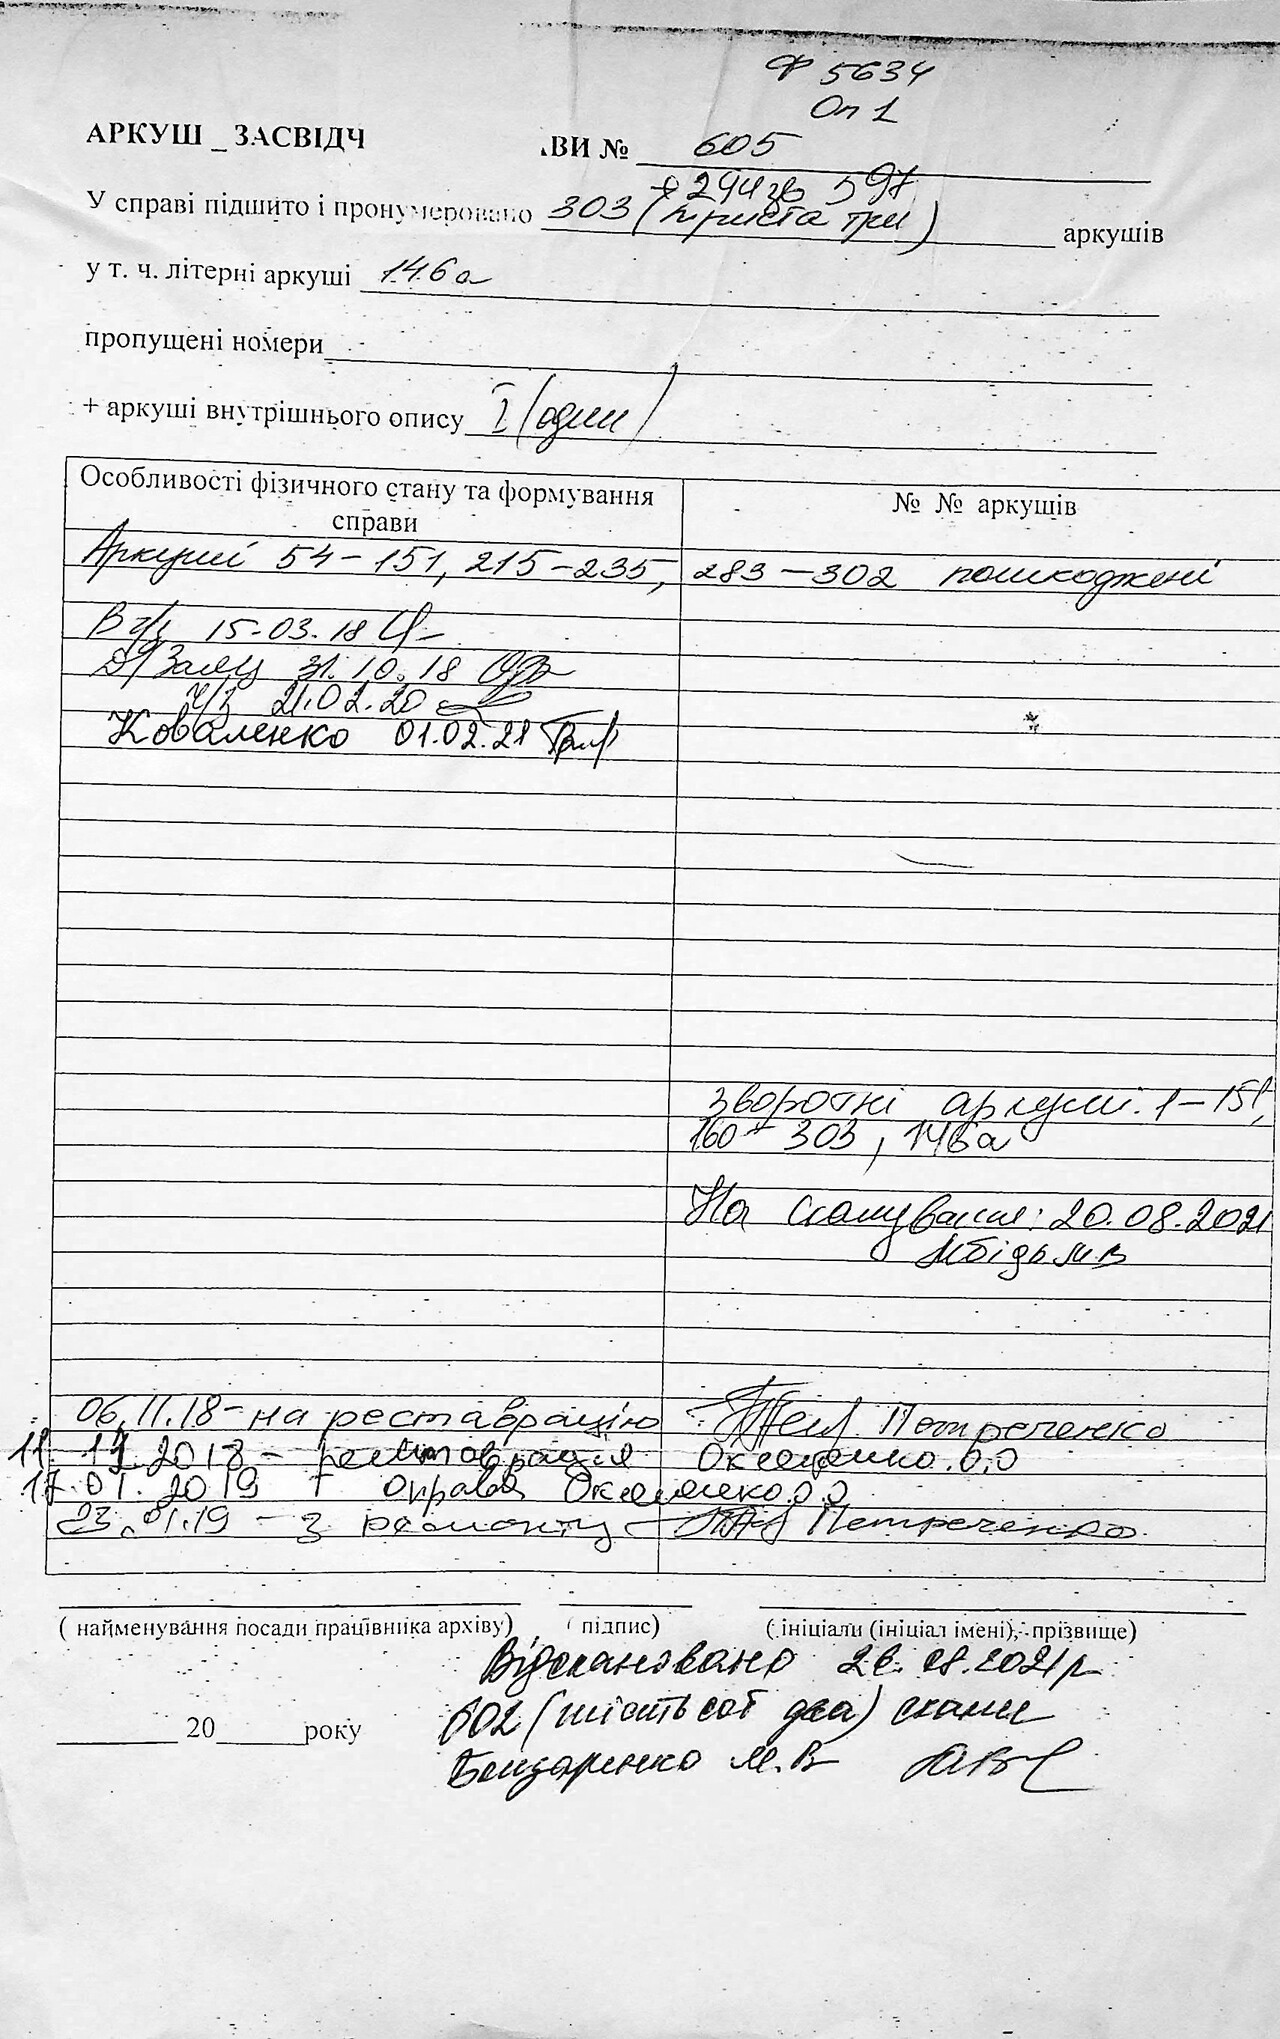 Ф 5634
Оп 1
АРКУШ _ ЗАСВІДЧ ВИ № 605
+ 294зв 597
У справі підшито і пронумеровано 303 (триста три) аркушів
у т. ч. літерні аркуші 146а
пропущені номери -
+ аркуші внутрішнього опису I (один)
Особливості фізичного стану та формування справи
№ № аркушів
Аркуші 54-151, 215-235, 283-302 пошкоджені
15.03.18
31.10.18
ч/з 21.02.20
Коваленко 01.02.21
зворотні аркуші: 1-151,
160-303, 146а
На сканування: 20.08.2021
06.11.18 - на реставрацію Петреченко
11.12.2018 - реставрація Оксененко.О.О
17.01.2019 - оправа Оксененко О.О
23.01.19 - з ремонту - Петреченко
( найменування посади працівника архіву) ( підпис) ( ініціали (ініціал імені), прізвище)
Відскановано 26.08.2021р
602 (шістьсот два) скани
20 року
Бондаренко М.В